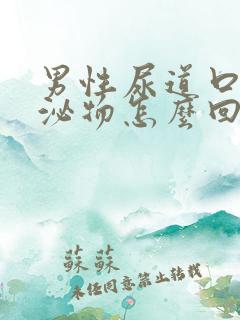 男性尿道口
泌物怎麼回
蘇蘇
未经同意禁止转载